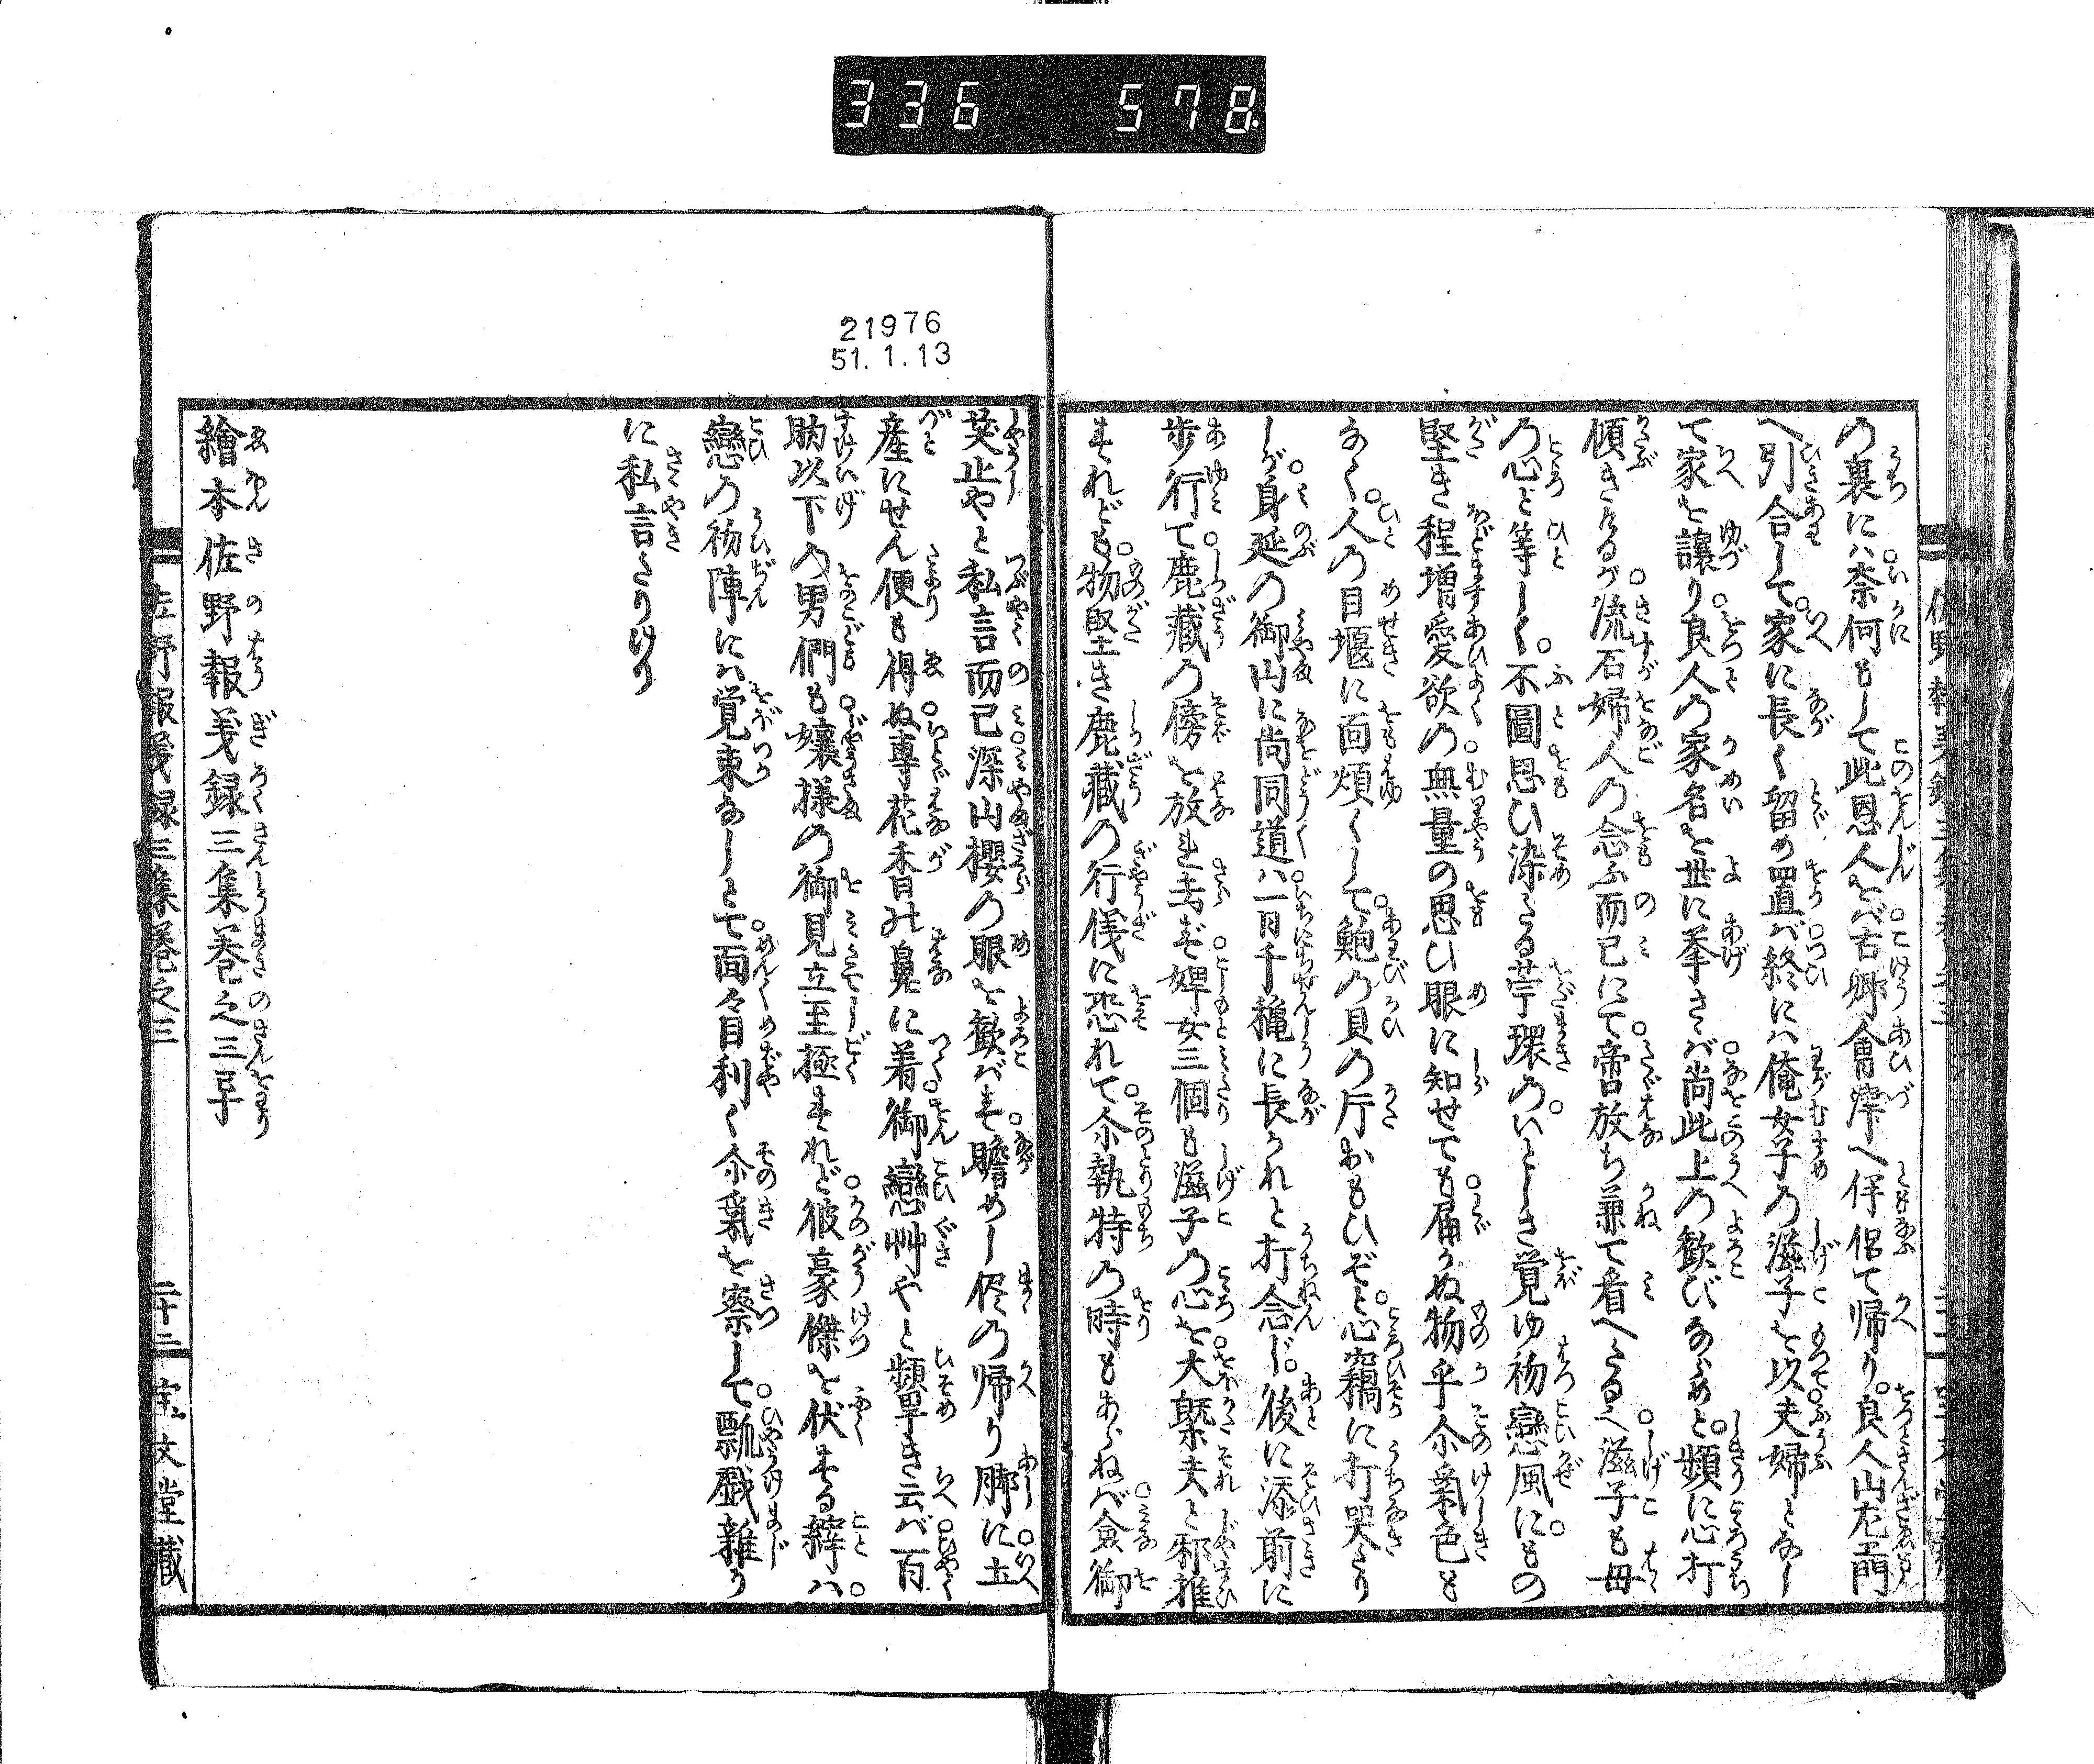 336 578
の裏にハ奈何もして此恩人をバ古郷會津へ伴侶て帰り。良人山左エ門
へ引合して。家に長く留め置バ終にハ俺女子の滋子を以夫婦となし
て家を譲り良人の家名を世に挙さバ尚此上の歓びあらめと。頻に心打
傾きたるが流石婦人の念ふ而已にて啻放ち兼て看へたるハ滋子も母
の心と等しく。不圖思ひ染たる苧環の。いとしさ覚ゆ初戀風に。もの
堅き程増愛欲の無量の思ひ眼に知せても届かぬ物乎尒氣色も
なく。人の目堰に面煩くして鮑の貝の片おもひぞと。心竊に打哭たり
しが身延の御山に尚同道ハ一日千穐に長かれと打念じ。後に添前に
歩行て鹿藏の傍を放れ去ず婢女三個も滋子の心を大槩夫と邪推
すれども物堅き鹿藏の行儀に恐れて尒執持の時もあらねバ僉御
笑止やと私言而已深山櫻の眼を歓バす瞻めし侭の帰り脚に土
産にせん便も得ぬ專花香のミ鼻に着御戀艸やと顰き云バ百
助以下の男們も嬢様の御見立至極すれど彼豪傑を伏する縡ハ。
戀の初陣にハ覚束なしとて面々目利く尒氣を察して。瓢戯雑り
に私言たりけり
繪本佐野報義録三集巻之三卒
左野報義録三集巻之三 二十二 宝文堂藏
21976
51.1.13